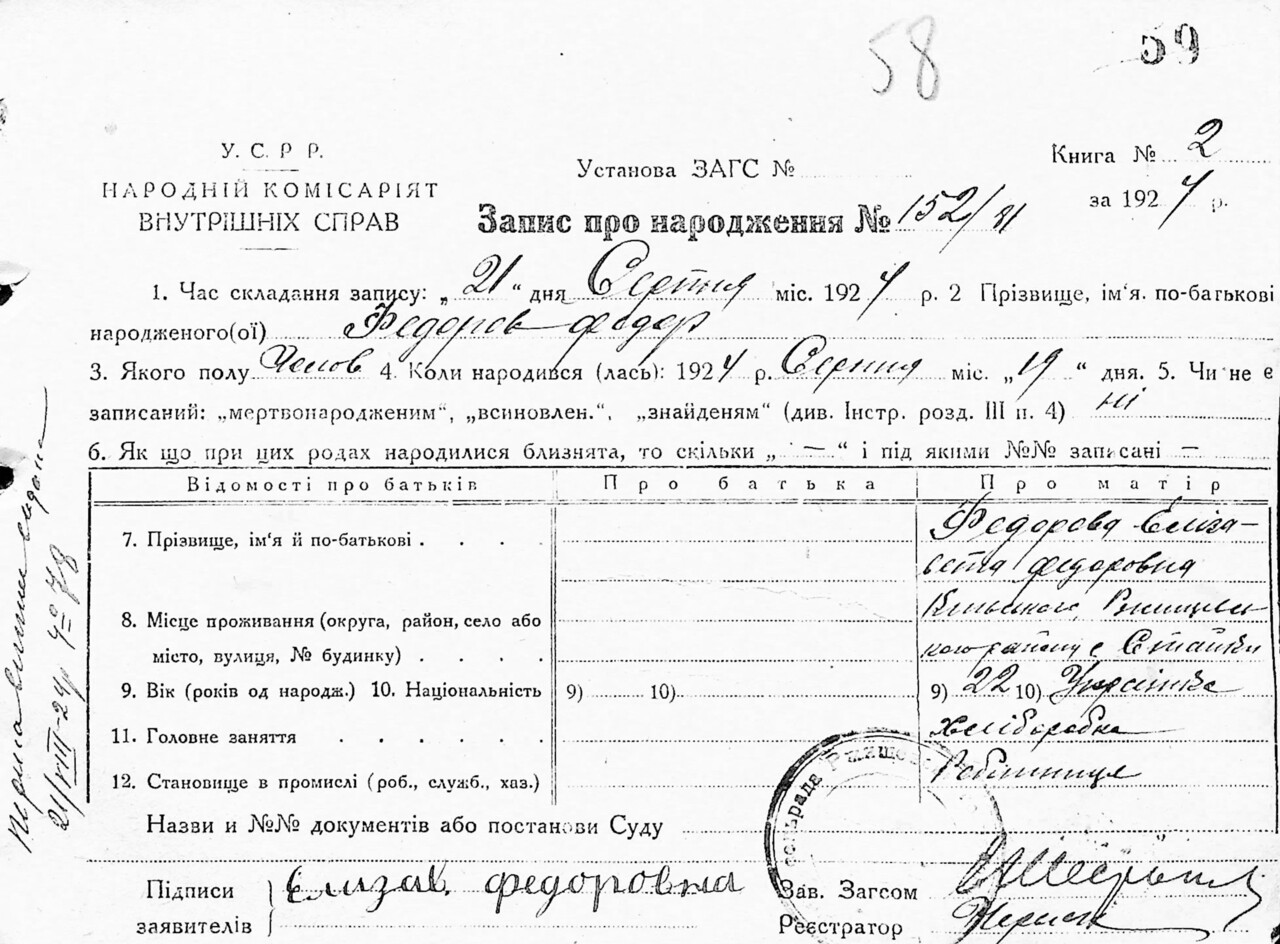 58
59
У. С. Р Р.
НАРОДНІЙ КОМІСАРІЯТ
ВНУТРІШНІХ СПРАВ
Установа ЗАГС №
Книга № 2
за 1924 р.
Запис про народження № 152/31
1. Час складання запису: „21“ дня Серпня міс. 1924 р. 2 Прізвище, ім'я. по-батькові
народженого(ої) Федоров федор
3. Якого полу Челов 4. Коли народився (лась): 1924 р. Серпня міс. „19“ дня. 5. Чи не є
записаний: „мертвонародженим“, „всиновлен.“, „знайденям“ (див. Інстр. розд. III п. 4) ні
6. Як що при цих родах народилися близнята, то скільки „ — “ і під якими №№ записані —
Відомості про батьків Про батька Про матір
7. Прізвище, ім'я й по-батькові . . . . Федорова Еліза-
вета федоровна
8. Місце проживання (округа, район, село або
місто, вулиця, № будинку) . . . . району с Стайки
9. Вік (років од народж.) 10. Національність 9) 10) 9) 22 10) Українка
11. Головне заняття . . . . . . Хліборобка
12. Становище в промислі (роб., служб., хаз.) Робітниця
Назви и №№ документів або постанови Суду
Підписи
заявителів
Елизав. федоровна
Зав. Загсом
Реєстратор
21/VIII-24